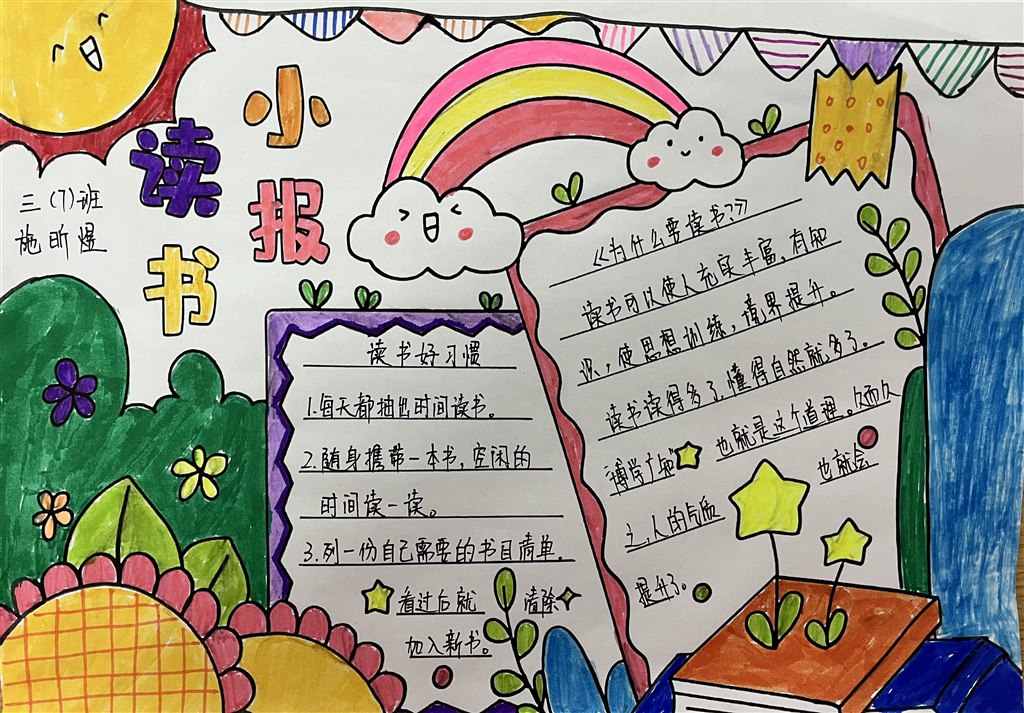 读书
小报
三(7)班
施昕煜
读书好习惯
1.每天都抽出时间读书。
2.随身携带一本书,空闲的
时间读一读。
3.列一份自己需要的书目清单。
看过后就 清除
加入新书。
《为什么要读书?》
读书可以使人充实丰富,有知
识,使思想训练,境界提升。
读书读得多了,懂得自然就多了。
博学广知 也就是这个道理。久而久
之,人的气质 也就会
提升了。